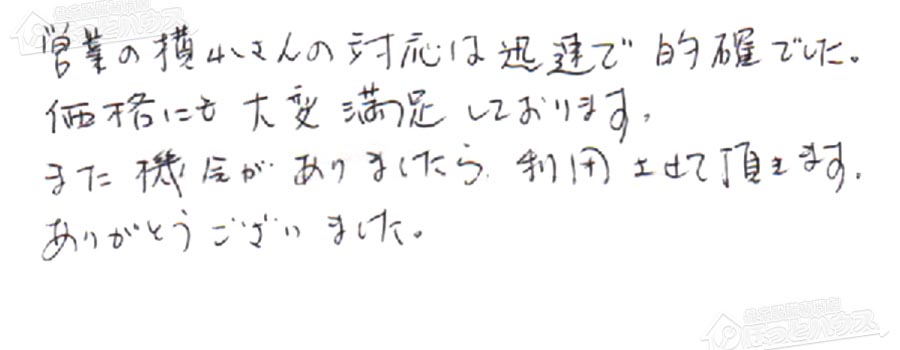 営業の横山さんの対応は迅速で的確でした。
価格にも大変満足しております。
また機会がありましたら利用させて頂きます。
ありがとうございました。
ほっとハウス
ほっとハウス